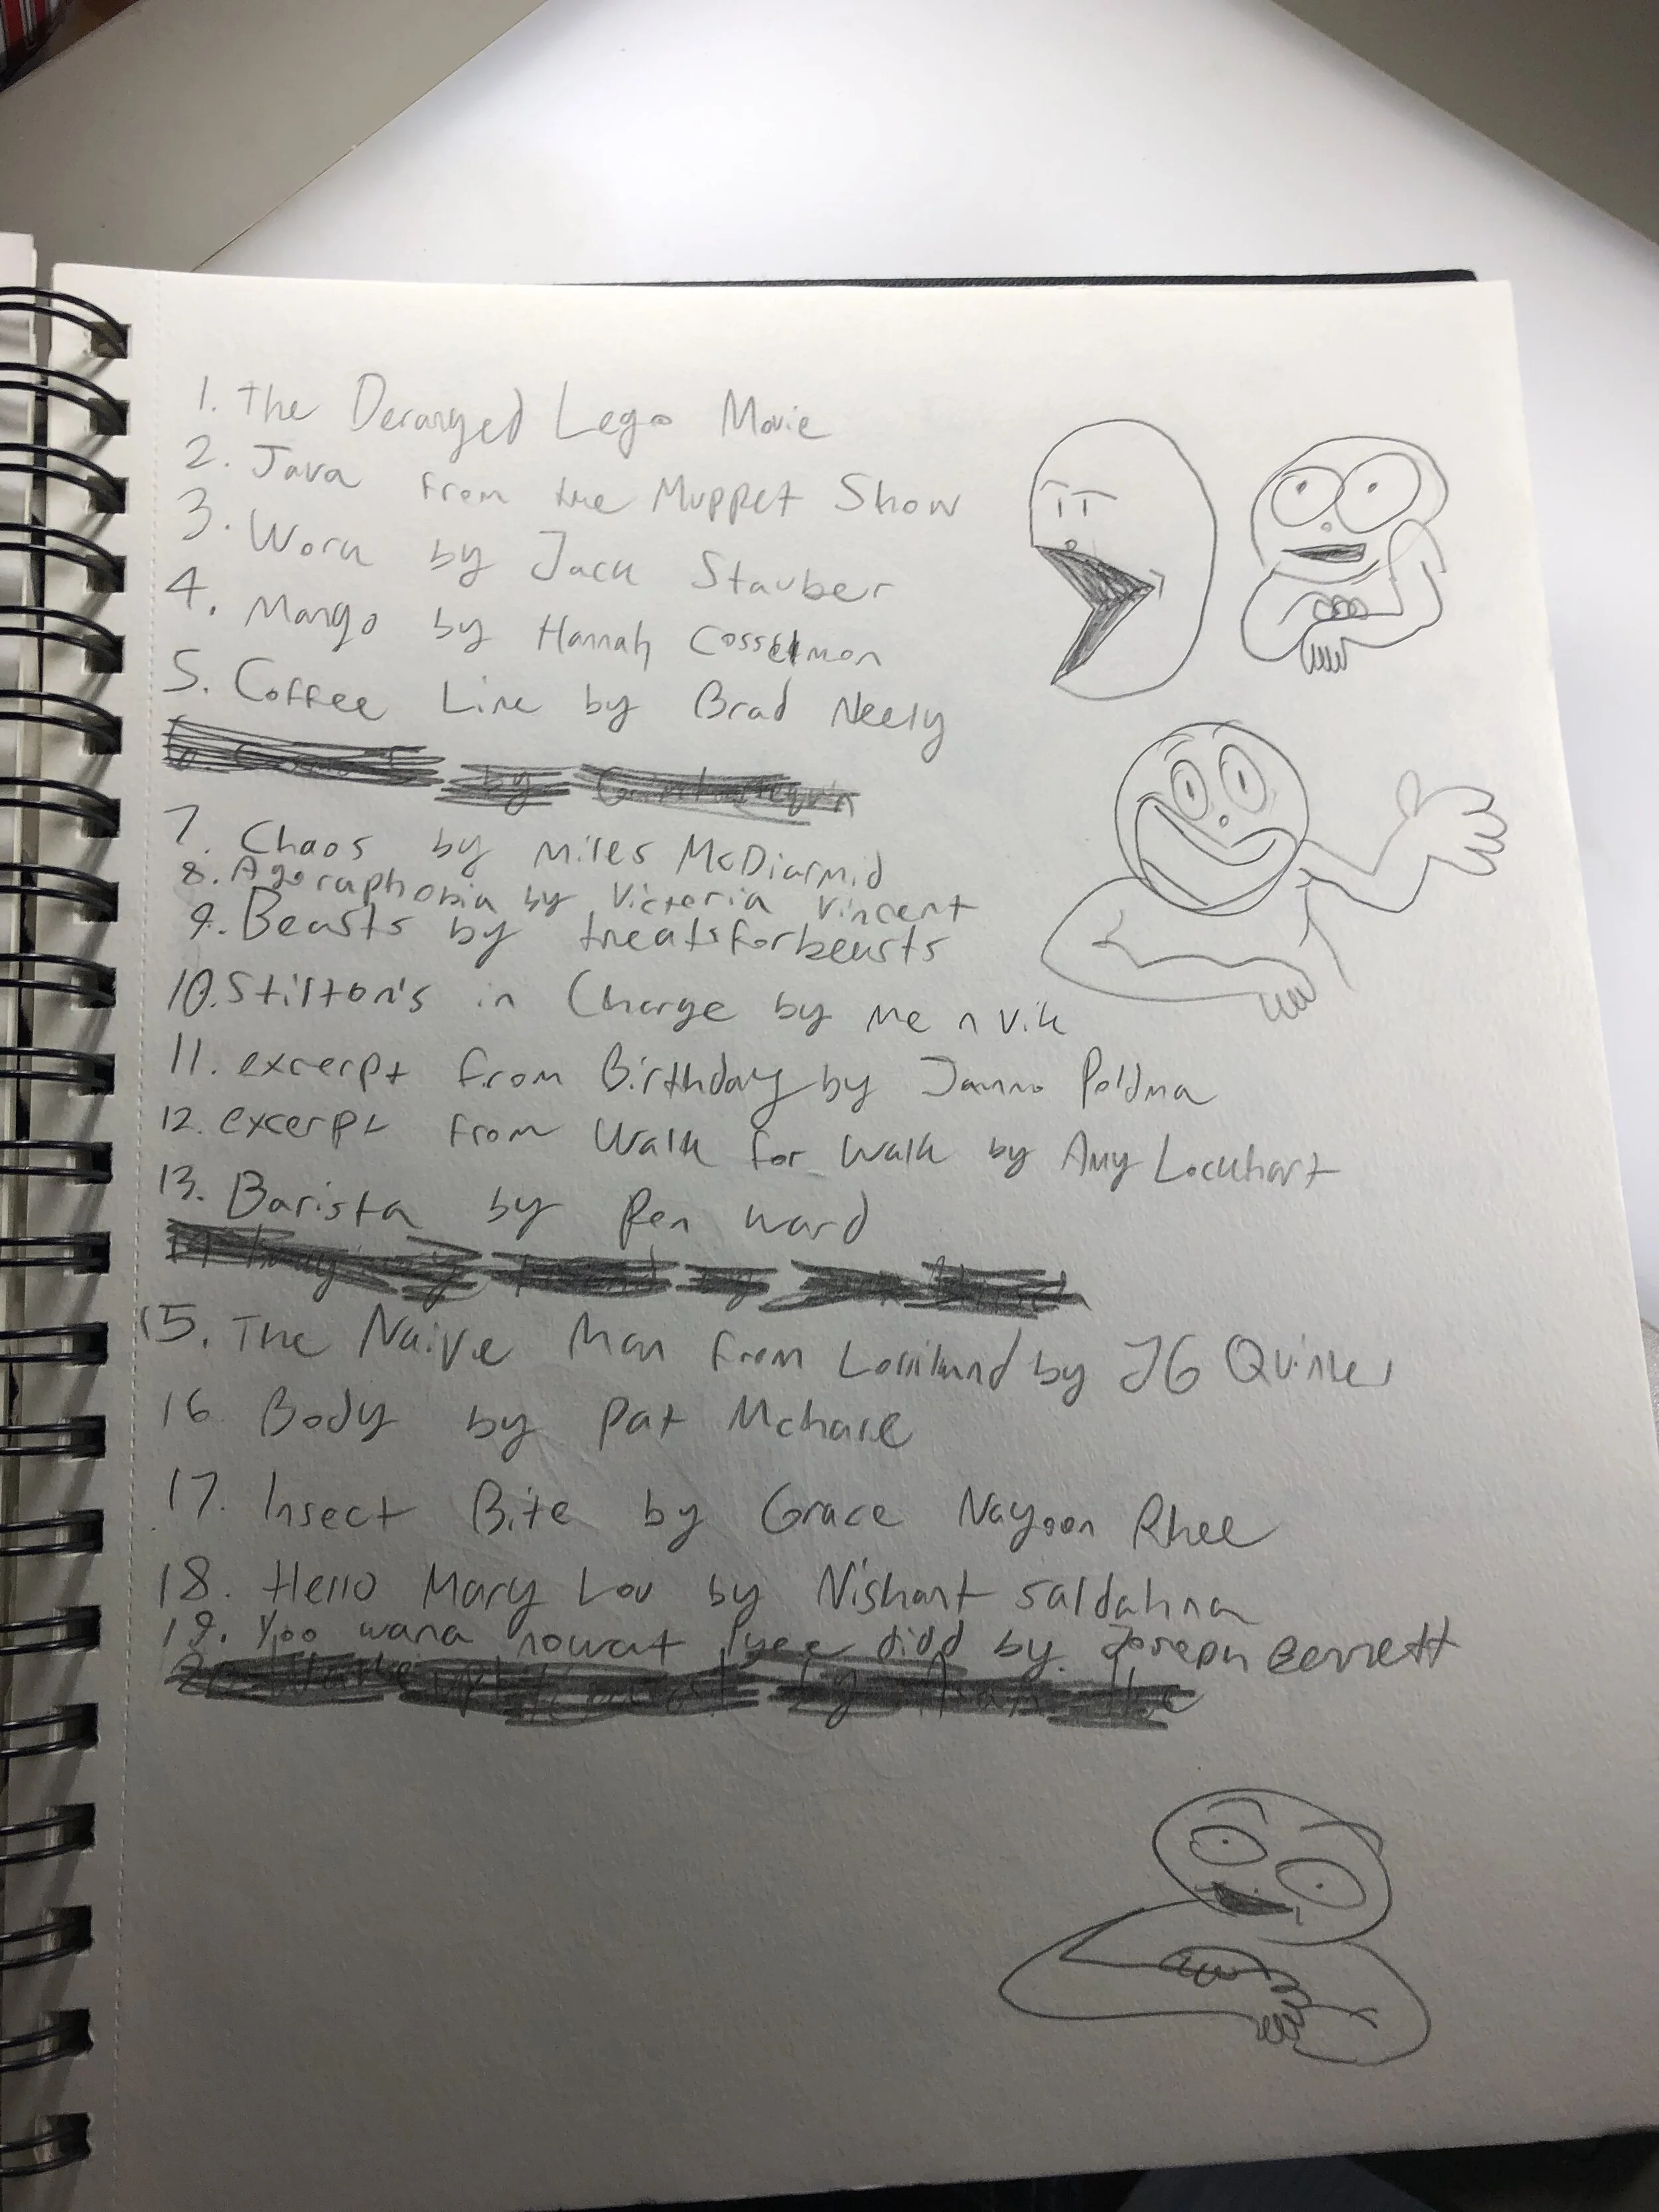 1. The Deranged Lego Movie
2. Java from the Muppet Show
3. Work by Jack Stauber
4. Mango by Hannah Cosselmon
5. Coffee Line by Brad Neely
by
7. Chaos by Miles McDiarmid
8. Agoraphobia by Victoria Vincent
9. Beasts by treatsforbeasts
10. Stilton's in Charge by me n vik
11. excerpt from Birthday by Janno Poldma
12. excerpt from Walk for Walk by Amy Lockhart
13. Barista by Pen Ward
by
15. The Naive Man from Lolliland by JG Quintel
16 Body by Pat Mchale
17. Insect Bite by Grace Nayoon Rhee
18. Hello Mary Lou by Nishant Saldahna
19. Yoo wana nowat Iyee didd by Joseph Bennett
20 by